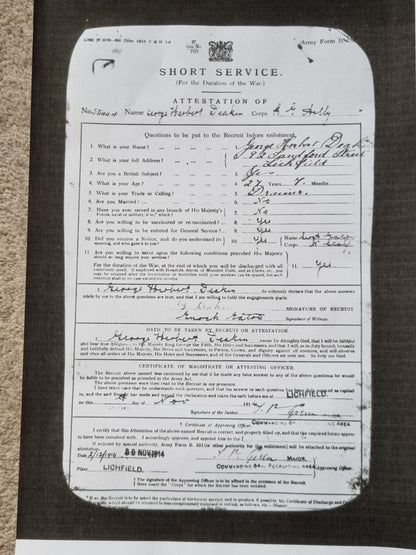 Army Form B.
SHORT SERVICE.
(For the Duration of the War.)
ATTESTATION OF
No. Name George Herbert Deakin Corps R. G. Artlly
Questions to be put to the Recruit before enlistment.
1. What is your Name? 1. George Herbert Deakin
2. What is your full Address? 2. Sandford Street
Lichfield
3. Are you a British Subject? 3. Yes
4. What is your Age? 4. 27 Years Months
5. What is your Trade or Calling? 5. Drainer
6. Are you Married? 6. No
7. Have you ever served in any branch of His Majesty's
Forces, naval or military, if so,* which? 7. No
8. Are you willing to be vaccinated or re-vaccinated? 8. Yes
9. Are you willing to be enlisted for General Service? 9. Yes
10. Did you receive a Notice, and do you understand its
meaning, and who gave it to you? 10. Yes Name
Corps
11. Are you willing to serve upon the following conditions provided His Majesty
should so long require your services?
For the duration of the War, at the end of which you will be discharged with all
convenient speed. If employed with Hospitals, depots of Mounted Units, and as Clerks, etc., you
may be retained after the termination of hostilities until your services can be spared, but such
retention shall in no case exceed six months. 11. Yes
I, George Herbert Deakin do solemnly declare that the above answers
made by me to the above questions are true, and that I am willing to fulfil the engagements made.
SIGNATURE OF RECRUIT
Enoch Eaton Signature of Witness
OATH TO BE TAKEN BY RECRUIT ON ATTESTATION.
I, George Herbert Deakin swear by Almighty God, that I will be
faithful and bear true Allegiance to His Majesty King George the Fifth, His Heirs and Successors, and that I will, as in duty bound, honestly
and faithfully defend His Majesty, His Heirs and Successors, in Person, Crown, and Dignity against all enemies, and will observe
and obey all orders of His Majesty, His Heirs and Successors, and of the Generals and Officers set over me. So help me God.
CERTIFICATE OF MAGISTRATE OR ATTESTING OFFICER.
The Recruit above named was cautioned by me that if he made any false answer to any of the above questions he would
be liable to be punished as provided in the Army Act.
The above questions were then read to the Recruit in my presence.
I have taken care that he understands each question, and that his answer to each question has been duly entered as replied
to, and the said Recruit has made and signed the declaration and taken the oath before me at LICHFIELD.
on this day of Nov 191
Signature of the Justice
† Certificate of Approving Officer.
I certify that this Attestation of the above-named Recruit is correct, and properly filled up, and that the required forms appear
to have been complied with. I accordingly approve, and appoint him to the ‡
If enlisted by special authority, Army Form B. 203 (or other authority for the enlistment) will be attached to the original
attestation.
Date 30 NOV 1914 MAJOR
Place LICHFIELD. COMMANDING RECRUITING AREA Approving Officer.
† The signature of the Approving Officer is to be affixed in the presence of the Recruit.
‡ Here insert the "Corps" for which the Recruit has been enlisted.